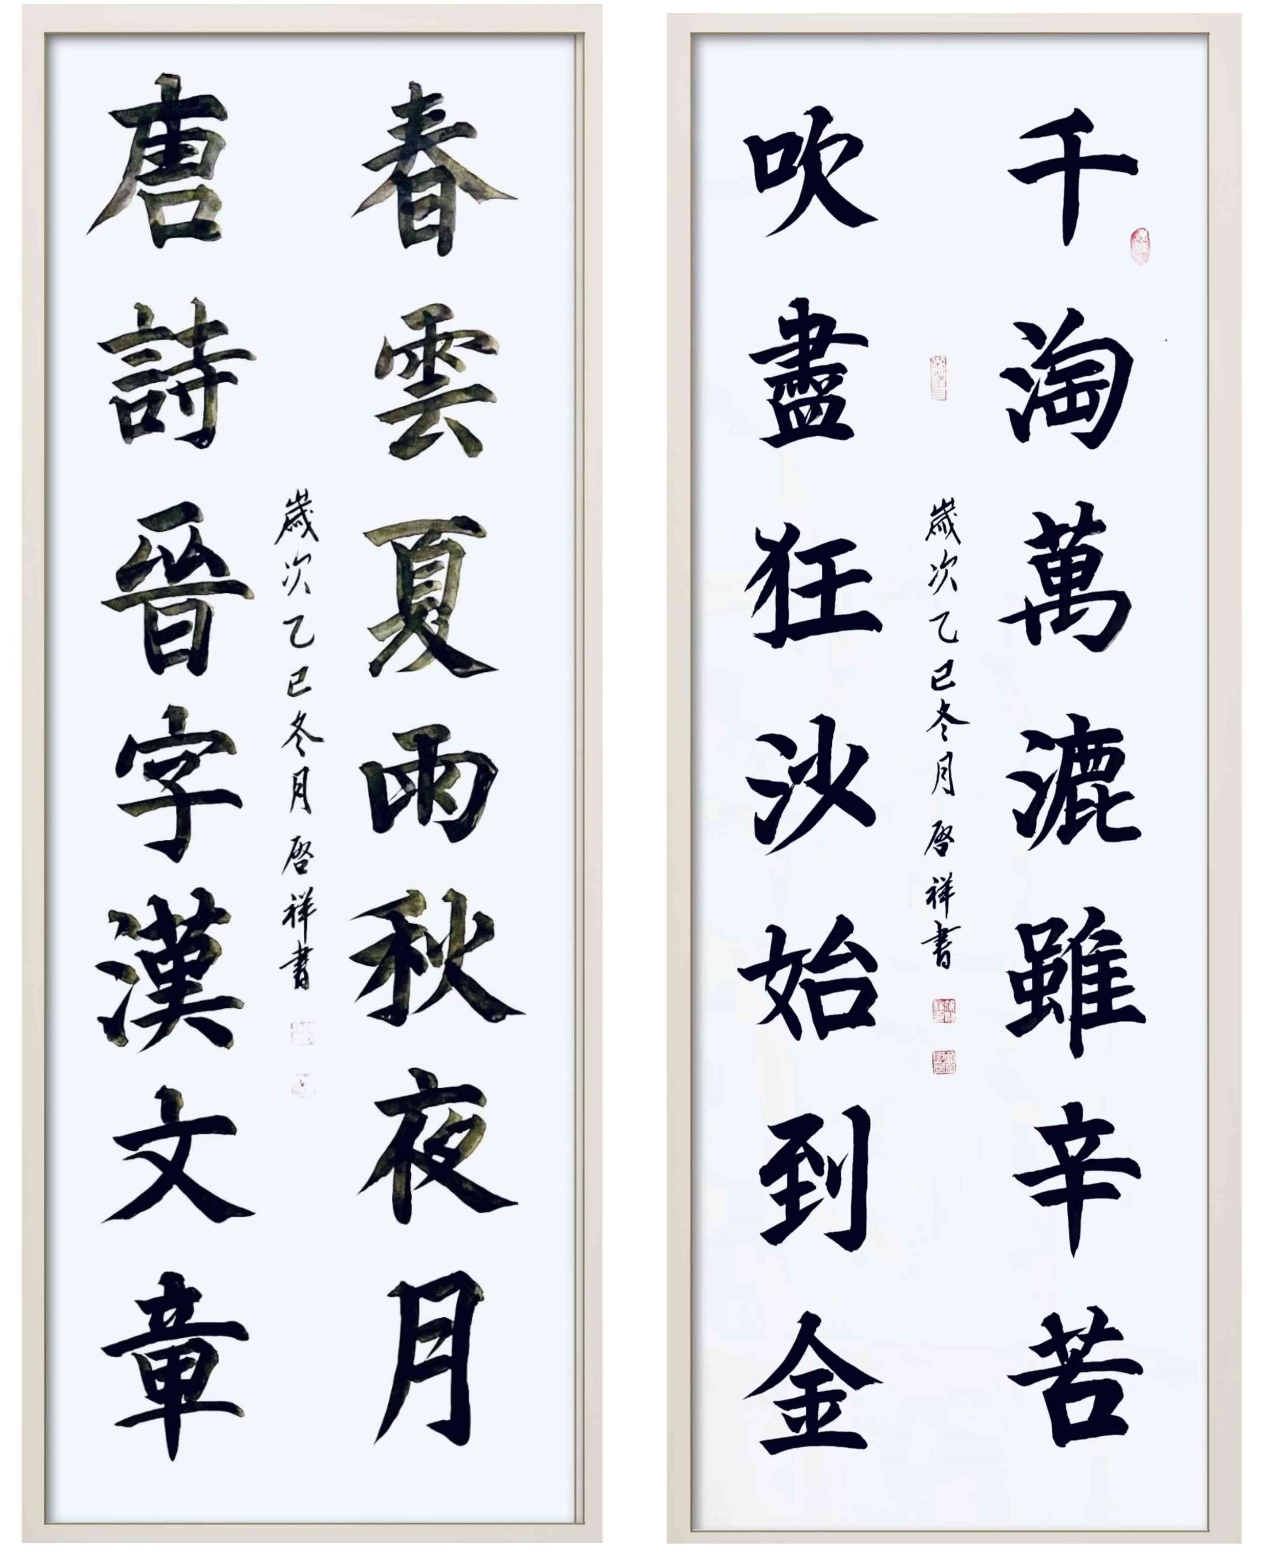 春雲夏雨秋夜月
唐詩晉字漢文章
歲次乙巳冬月啓祥書
千淘萬漉雖辛苦
吹盡狂沙始到金
歲次乙巳冬月啓祥書